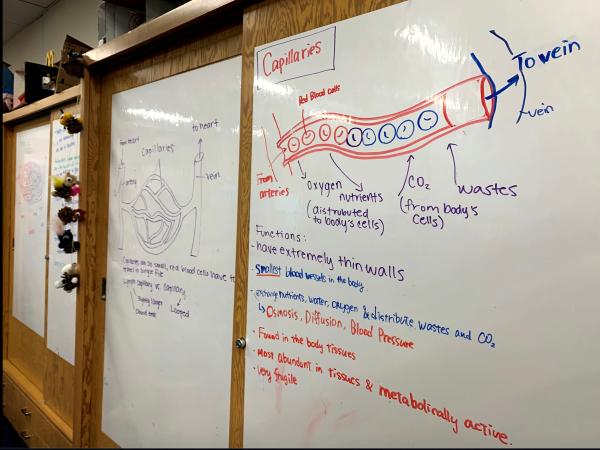 from heart
to heart
Capillaries
artery
vein
Capillaries can be so small, red blood cells have to
travel in single file
Lymph capillary vs. capillary
Slightly larger
Closed ends
Looped
Capillaries
Red Blood cells
To vein
vein
From
arteries
oxygen
nutrients
(distributed
to body's cells)
CO₂
(from body's
cells)
wastes
Functions:
- have extremely thin walls
- Smallest blood vessels in the body.
- exchange nutrients, water, oxygen & distribute wastes and CO₂
↳ Osmosis, Diffusion, Blood Pressure
- Found in the body tissues
- Most abundant in tissues & metabolically active.
- Very fragile